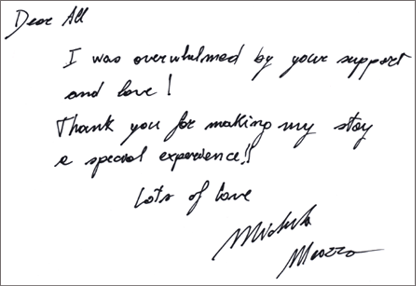 Dear All
I was overwhelmed by your support
and love!
Thank you for making my stay
a special experience!!
Lots of love